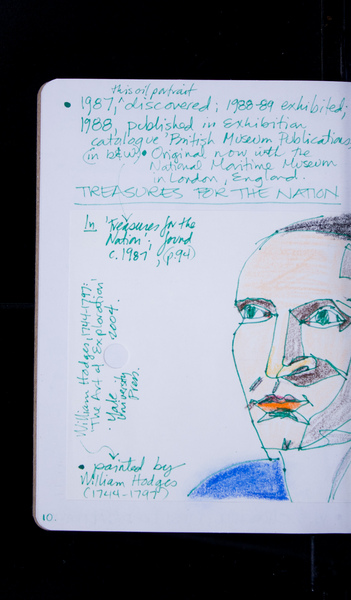 this oil portrait
• 1987, ^ discovered; 1988-89 exhibited;
1988, published in Exhibition
catalogue 'British Museum Publications
(in b&w) • Original now with the
National Maritime Museum
in London, England.
TREASURES FOR THE NATION
In 'Treasures for the
Nation'; found
c.1987, (p.94)
William Hodges, 1744-1797:
'The Art of Exploration'
2004.
• Yale
University
Press.
• painted by
William Hodges
(1744-1797)
10.